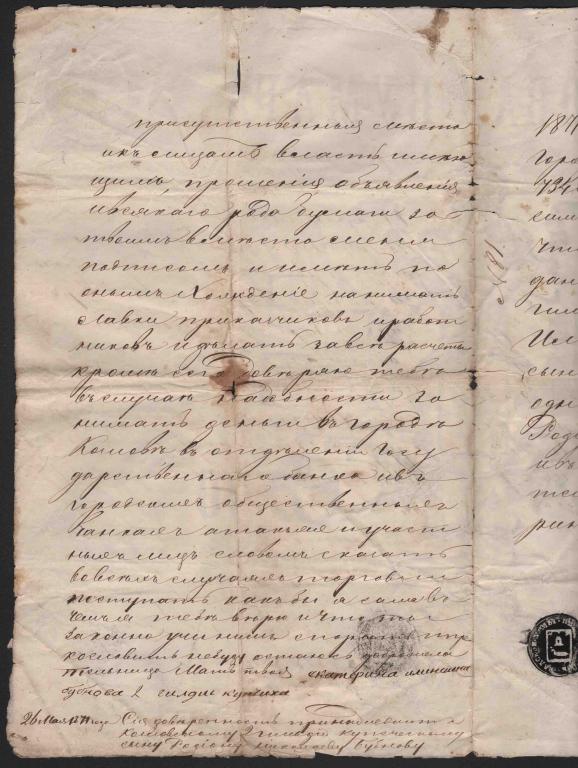 присутственныя места
и къ лицамъ власть имею
щимъ, прошенія объявленія
и всякаго рода бумаги за
твоимъ вместо меня
подписомъ и иметь по
онымъ хожденіе нанимать
лавки прикащиковъ и работ
никовъ и делать за все расчеты
кроме сего доверяю тебе
въ случае надобности за
нимать деньги въ городе
въ отделении Госу
дарственнаго банка и въ
городскомъ общественномъ
банкахъ а такъже и у част
ныхъ лицъ словомъ сказать
во всехъ случаяхъ торговли
поступать какъ бы я сама въ
чемъ тебе верю и что ты
законно учинишь спорить и пре
кословить небуду остаюсь
Мать твоя Екатерина
Бубнова 2 гилдіи купчиха
26 Мая 1871 года Сія доверенность принадлежитъ
2 гилдіи купеческому
сыну Родіону Николаеву Бубнову
№ 81.
1871
горо
734
сим
что
дан
гил
сын
одн
Роді
ивъ